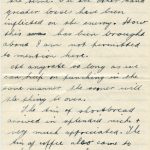 greater losses have been
inflicted on the enemy. How
this was has been brought
about I am not permitted
to mention here.
At any rate so long as we
can keep on punching in the
same manner the sooner will
be peace or over.
The tin of shortbread
arrived in splendid nick &
very much appreciated. The
tin of coffee also came to